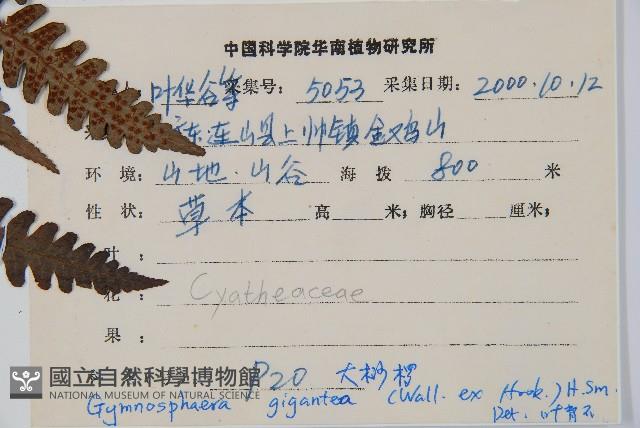 中国科学院华南植物研究所
叶华谷等 采集号: 5053 采集日期: 2000.10.12
东连山县上帅镇金鸡山
环 境: 山地.山谷 海 拨 800 米
性 状: 草本 高 米; 胸径 厘米;
叶 :
花 : Cyatheaceae
果 :
P20 大桫椤
Gymnosphaera gigantea (Wall. ex Hook.) H.Sm.
Det. 叶育石
國立自然科學博物館
NATIONAL MUSEUM OF NATURAL SCIENCE